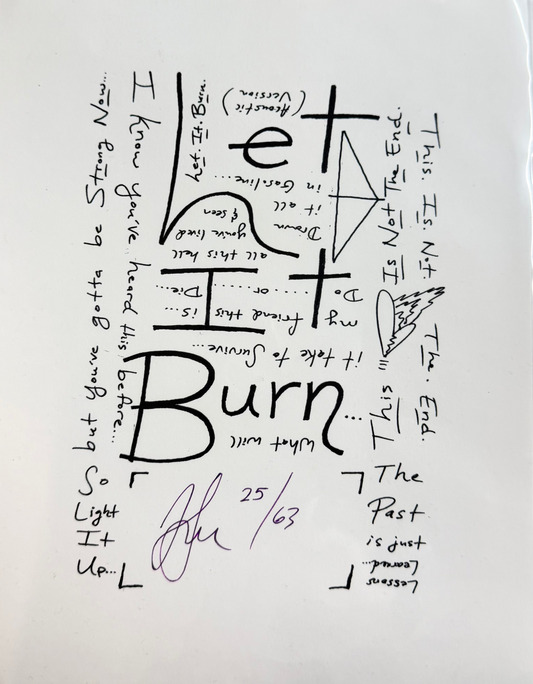 Let
It
Burn...
(Acoustic
Version)
Let. It. Burn.
I know you've heard this before...
but you've gotta be Strong Now...
So
Light
It
Up...
What will
it take to Survive...
my friend this is...
Do or Die...
all this hell
you've lived
& seen
Drown
it all
in Gasoline...
This Is Not The End.
This. Is. Not. The. End.
The
Past
is just
Lessons
Learned...
25/63